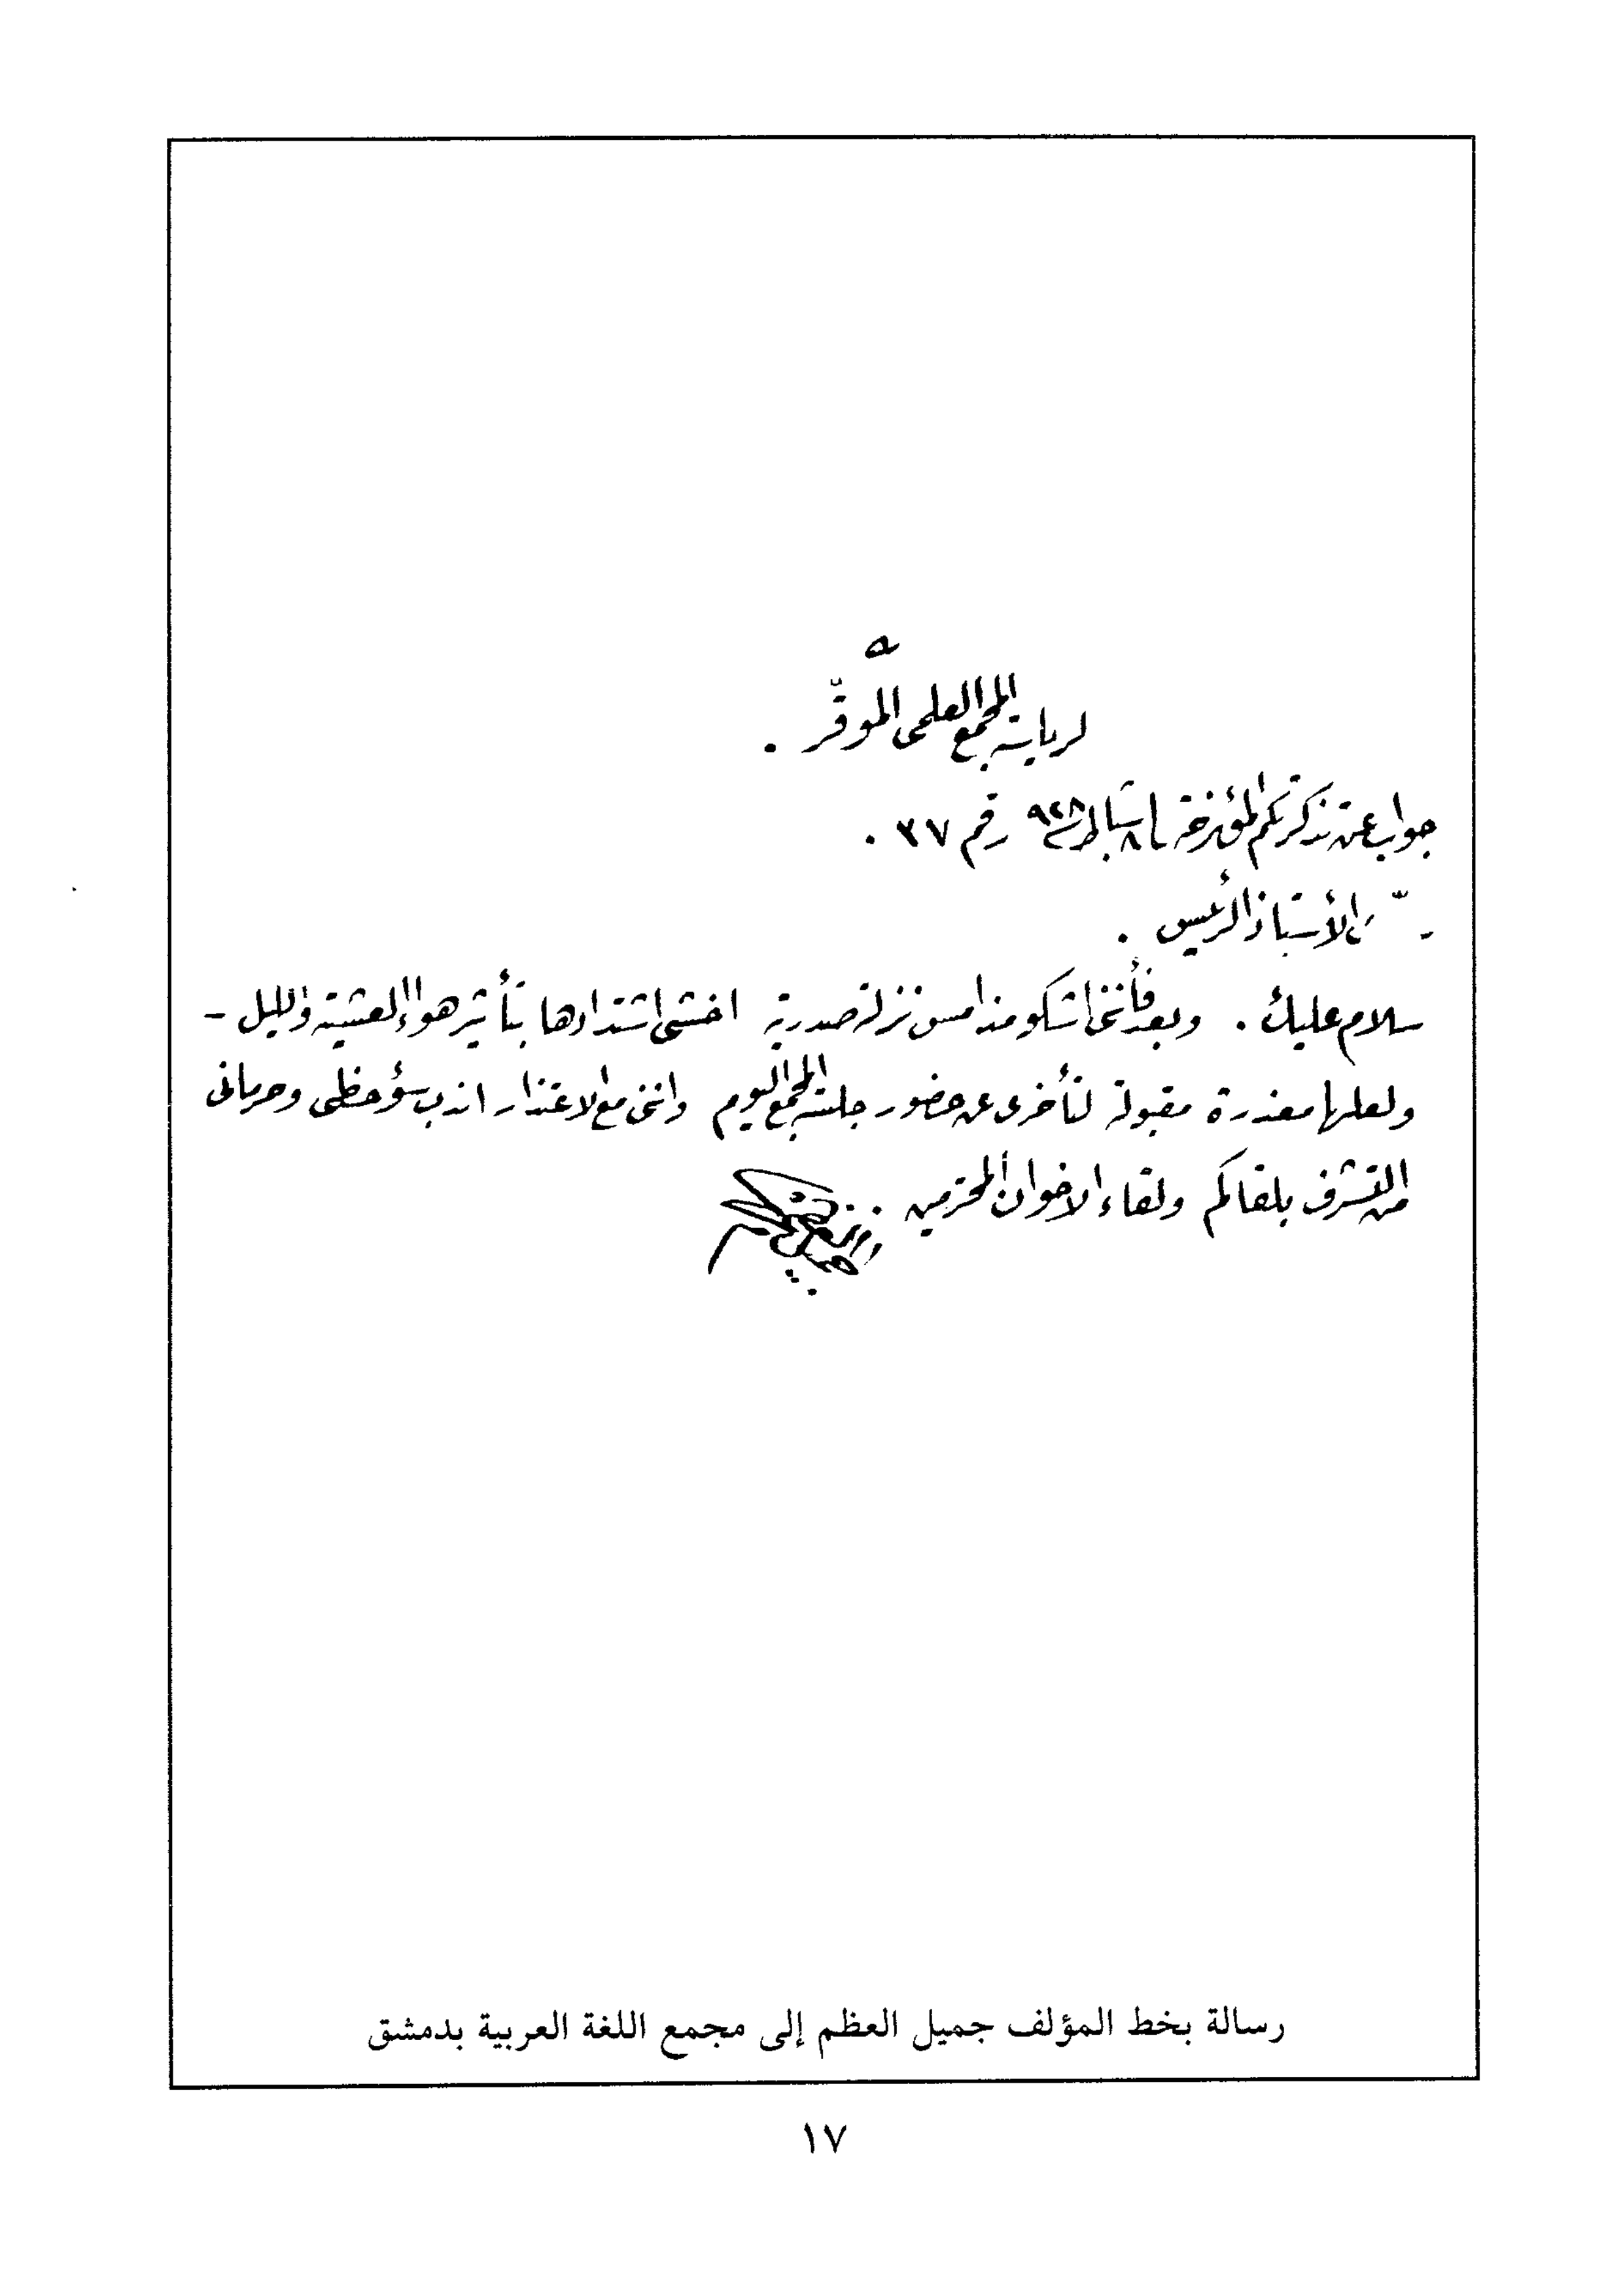 لرياسة المجمع العلمي الموقّر .
جواب عن تذكرتكم المؤرخة شباط ٩٢٨ رقم ٣٧ .
الأستاذ الرئيس .
سلام عليك . وبعد فأنني اشكو منذ امس نزلة صدرية اخشى اشتدادها بتأثير هواء العشية والليل -
ولعلها معذرة مقبولة لتأخري عن حضور جلسة المجمع اليوم وانني مع الاعتذار اندب سوء حظي وحرماني
من التشرف بلقاكم ولقاء الاخوان المحترمين
رسالة بخط المؤلف جميل العظم إلى مجمع اللغة العربية بدمشق
١٧